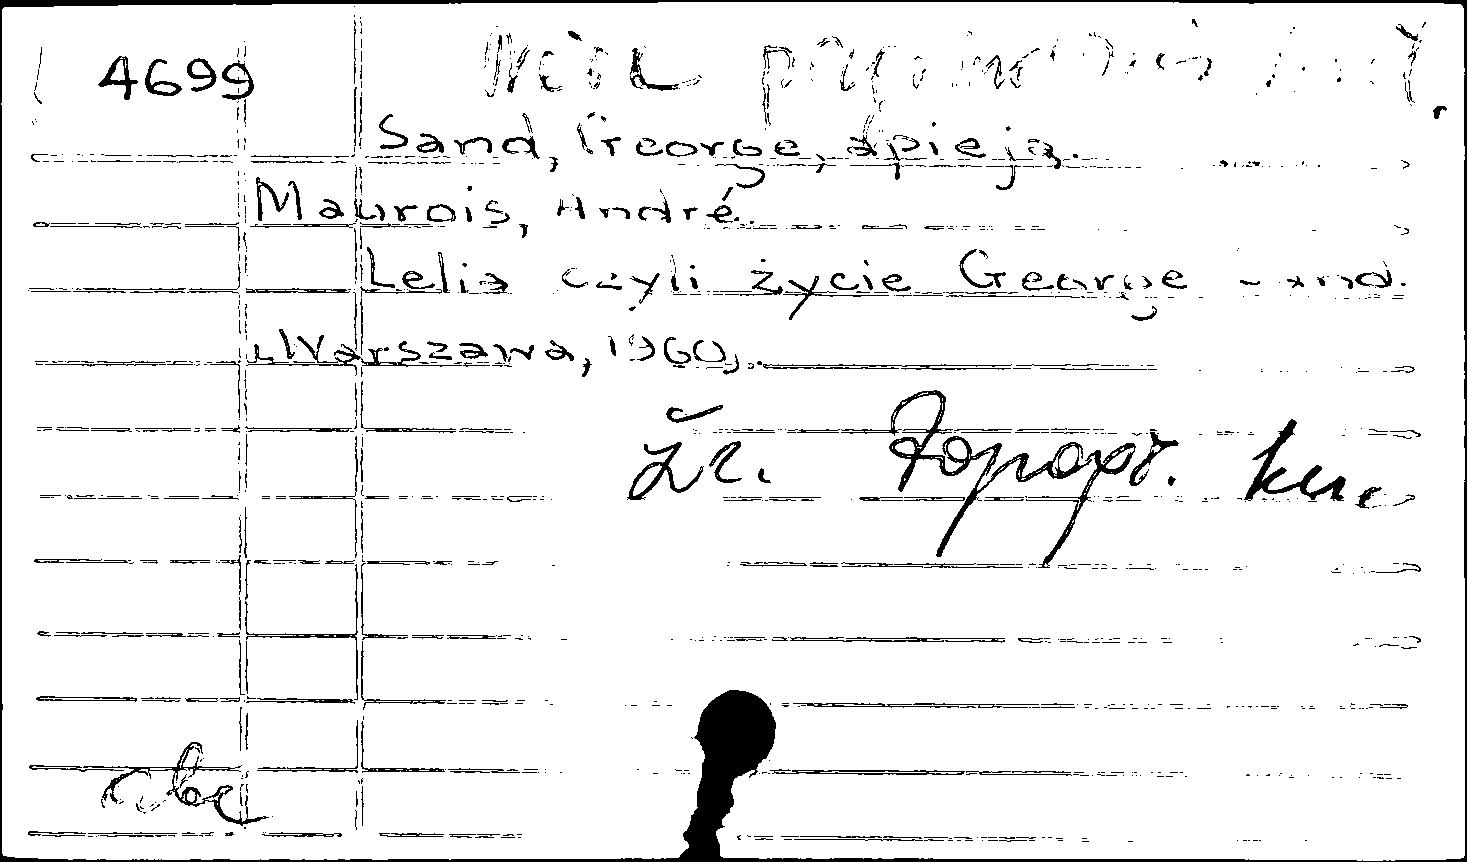 4699
Sand, George, apie ją.
Maurois, André.
Lelia czyli życie George Sand.
Warszawa, 1960.
Žr. Topogr. kat.